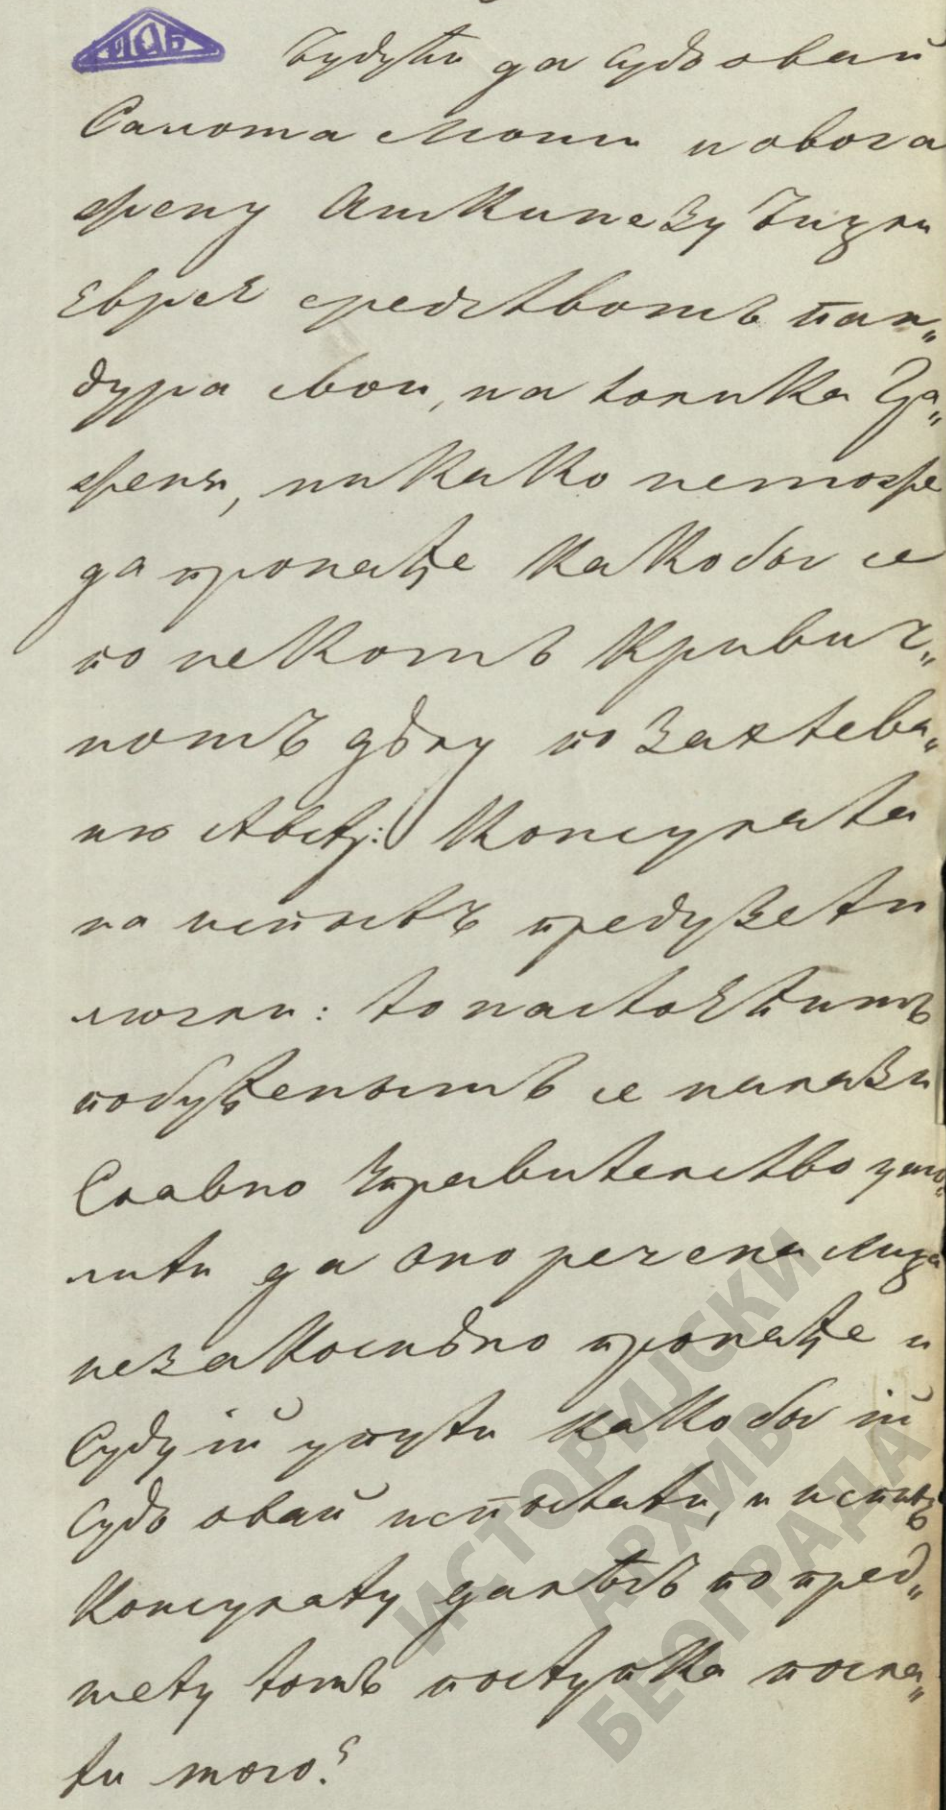 ИАБ
Будући да судъ овай
Самота Мони и овога
жену Ашкинезу Бицли
Еврее средствомъ пан„
дура свои, на толика тра„
женя, никако неможе
да пронаће како бы се
по некомъ кривич„
номъ дѣлу по захтева„
нию Австр: Консулата
на испытъ предузети
могли: то настоећимъ
побуђенымъ се налази
Славно Управителство умо„
лити да оно речена лица
незакоснѣно пронаће и
Суду ій упути како бы ій
Судъ овай испытати, и испытъ
Консулату далѣгъ по пред„
мету томъ поступка посла„
ти мого.
ИСТОРИЈСКИ
АРХИВ
БЕОГРАДА